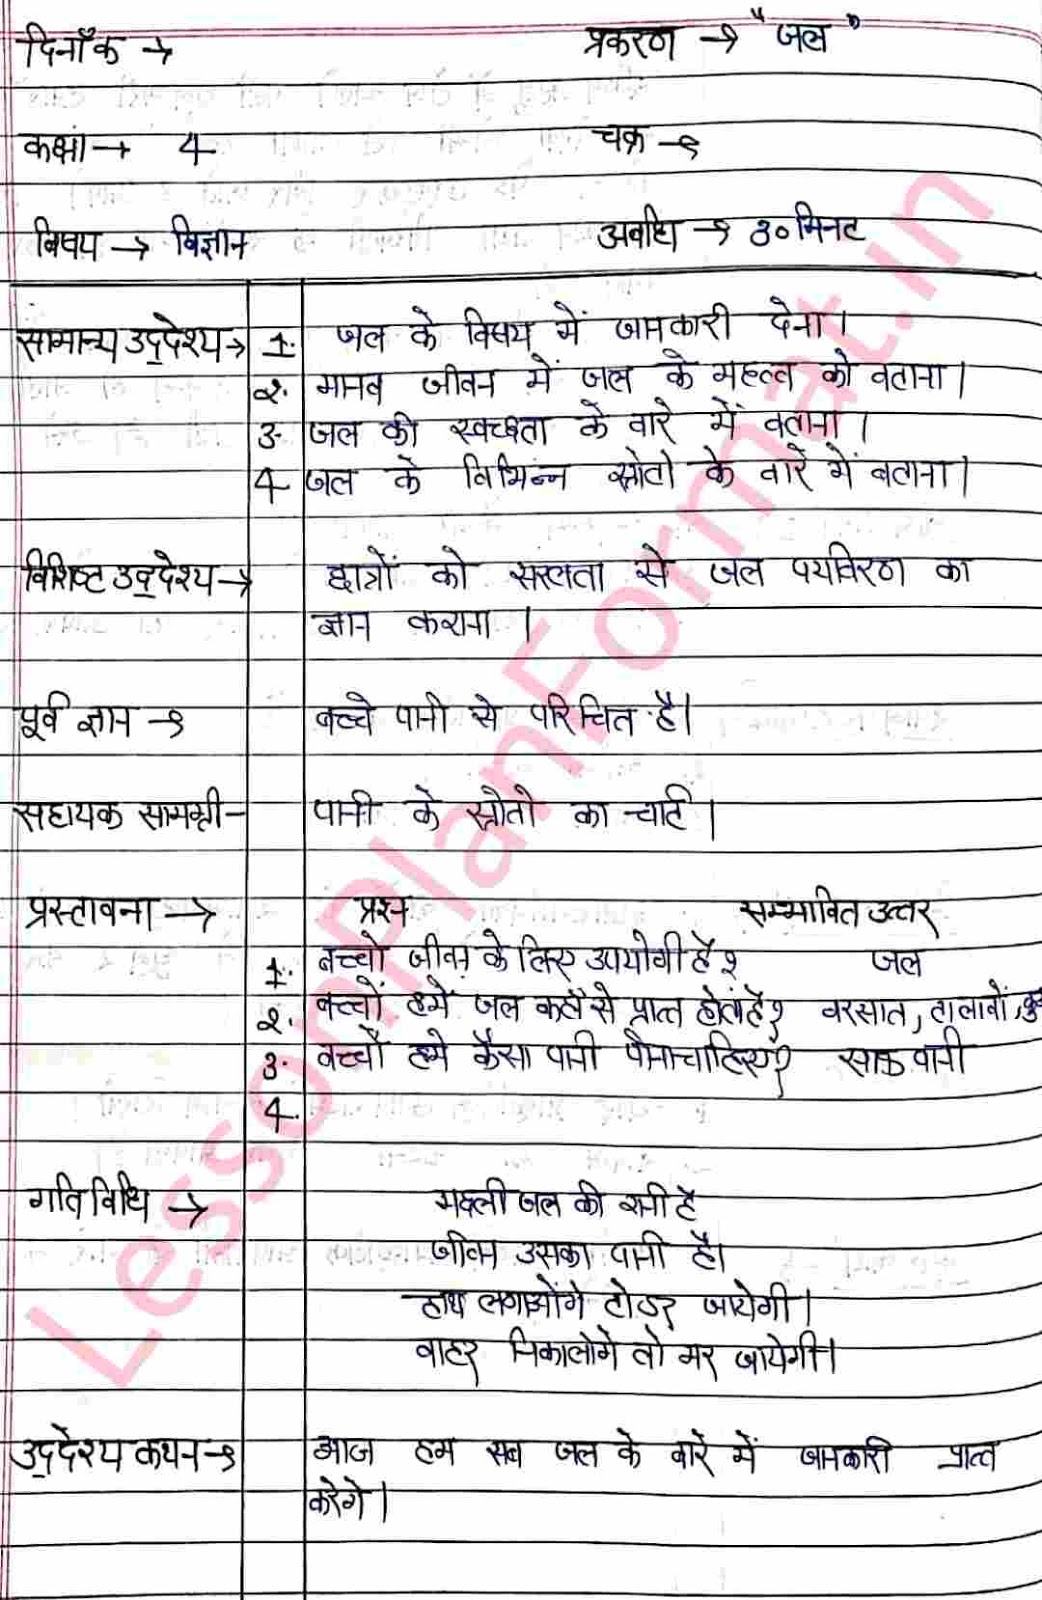 दिनाँक → प्रकरण → "जल"
कक्षा → 4 चक्र →
विषय → विज्ञान अवधि → 30 मिनट
सामान्य उद्देश्य → 1. जल के विषय में जानकारी देना।
2. मानव जीवन में जल के महत्व को बताना।
3. जल की स्वच्छता के बारे में बताना।
4. जल के विभिन्न स्रोतो के बारे में बताना।
विशिष्ट उद्देश्य → छात्रों को सरलता से जल पर्यावरण का
ज्ञान कराना।
पूर्व ज्ञान → बच्चे पानी से परिचित है।
सहायक सामग्री - पानी के स्रोतो का चार्ट।
प्रस्तावना → प्रश्न सम्भावित उत्तर
1. बच्चो जीवन के लिए उपयोगी है? जल
2. बच्चों हमें जल कहाँ से प्राप्त होता है? बरसात, तालाबों,
3. बच्चों हमे कैसा पानी पीना चाहिए? साफ पानी
4.
गतिविधि → मछली जल की रानी है
जीवन उसका पानी है।
हाथ लगाओगे तो डर जायेगी।
बाहर निकालोगे तो मर जायेगी।
उद्देश्य कथन → आज हम सब जल के बारे में जानकारी प्राप्त
करेगे।
LessonPlanFormat.in